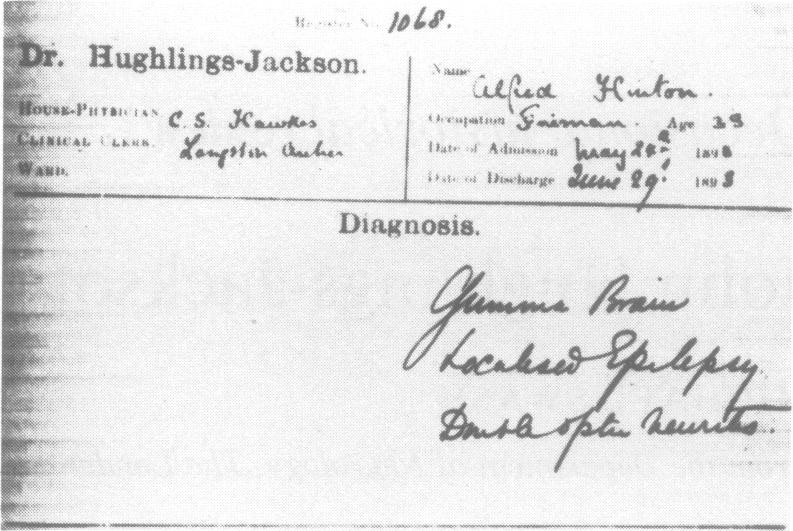 Register No. 1068.
Dr. Hughlings-Jackson.
House-Physician C. S. Hawkes
Clinical Clerk.
Ward.
Name Alfred Hinton.
Occupation Fireman. Age 38
Date of Admission May 1893
Date of Discharge June 29 1893
Diagnosis.
Gumma Brain
Localised Epilepsy
Double optic neuritis.